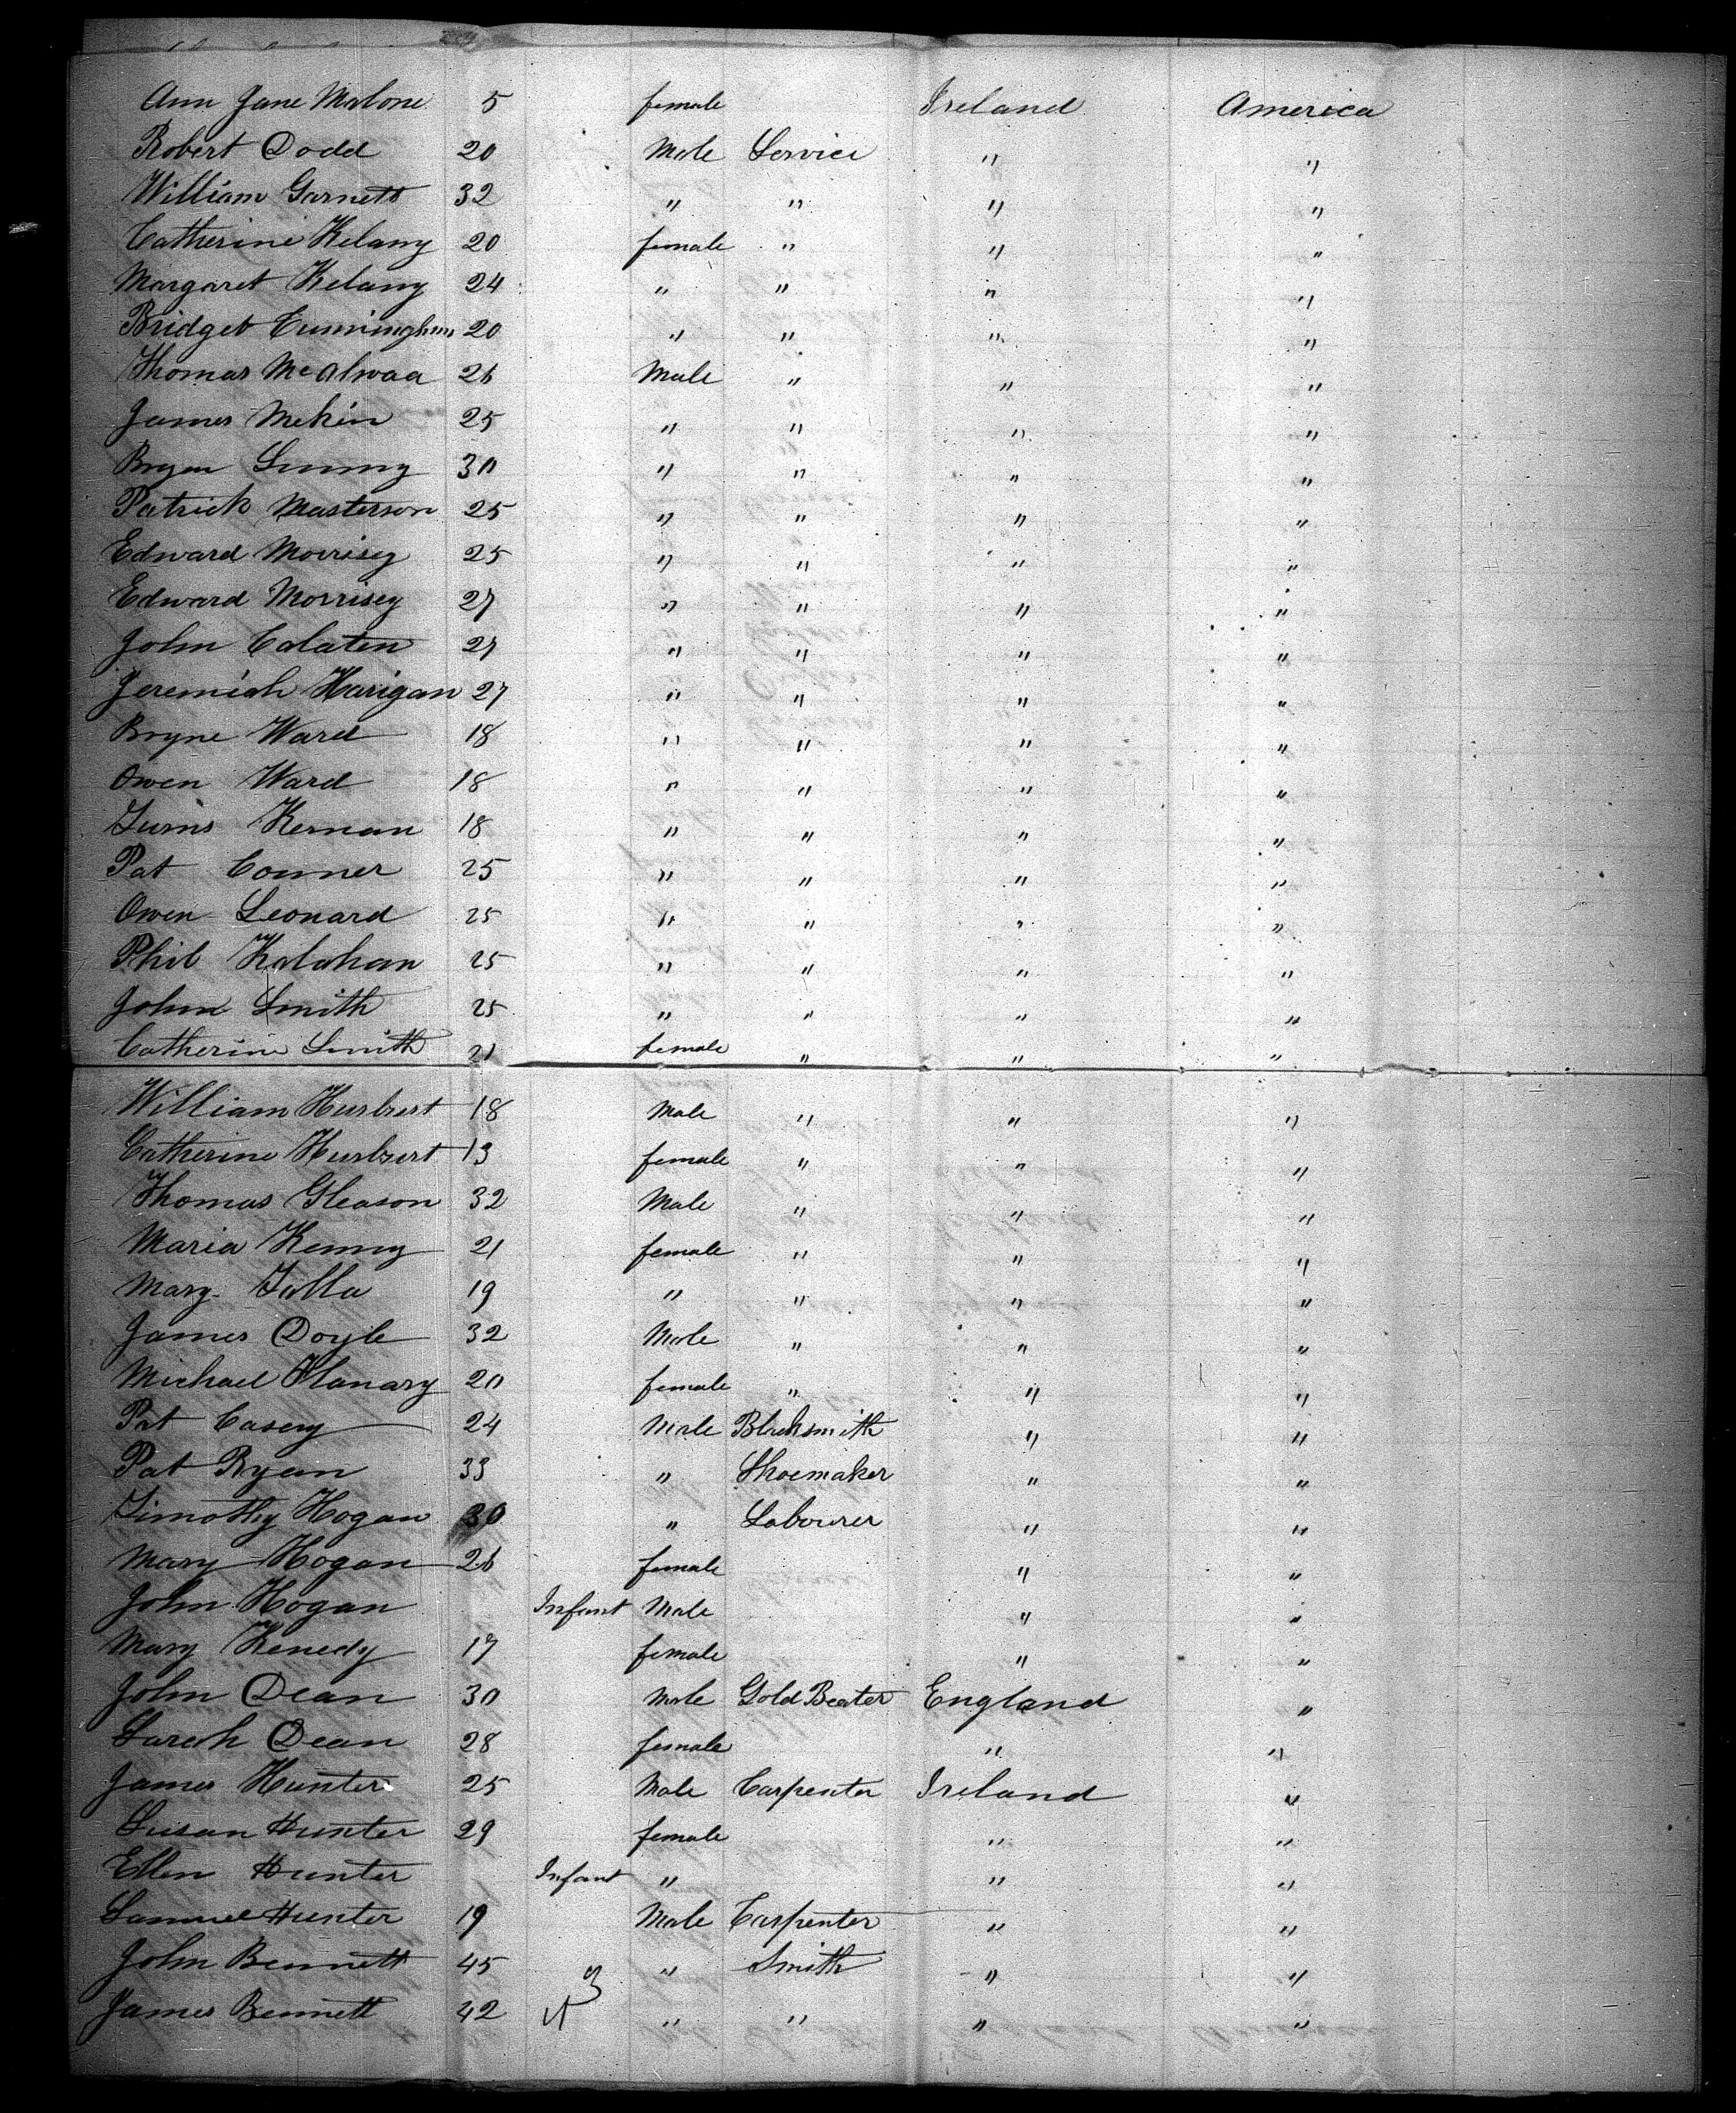 Ann Jane Malone 5 female Ireland America
Robert Dodd 20 Male Service " "
William Garnett 32 " " " "
Catherine Kelany 20 female " " "
Margaret Kelany 24 " " " "
Bridget Cunningham 20 " " " "
Thomas McAlwaa 26 Male " " "
James Mekin 25 " " " "
Bryan Sunny 30 " " " "
Patrick Masterson 25 " " " "
Edward Morrisey 25 " " " "
Edward Morrisey 27 " " " "
John Calaten 27 " " " "
Jeremiah Harigan 27 " " " "
Bryne Ward 18 " " " "
Owen Ward 18 " " " "
Kernan 18 " " " "
Pat Conner 25 " " " "
Owen Leonard 25 " " " "
Phil Kalahan 25 " " " "
John Smith 25 " " " "
Catherine Smith 21 female " " "
William Hurbert 18 Male " " "
Catherine Hurbert 13 female " " "
Thomas Gleason 32 Male " " "
Maria Kenny 21 female " " "
Mary 19 " " " "
James Doyle 32 Male " " "
Michael Flanary 20 female " " "
Pat Casey 24 Male Blacksmith " "
Pat Ryan 33 " Shoemaker " "
Timothy Hogan 30 " Labourer " "
Mary Hogan 26 female " "
John Hogan Infant Male " "
Mary Kenedy 17 female " "
John Dean 30 Male Gold Beater England "
Sarah Dean 28 female " "
James Hunter 25 Male Carpenter Ireland "
Susan Hunter 29 female " "
Ellen Hunter Infant " " "
Samuel Hunter 19 Male Carpenter " "
John Bennett 45 " Smith " "
James Bennett 42 " " " "